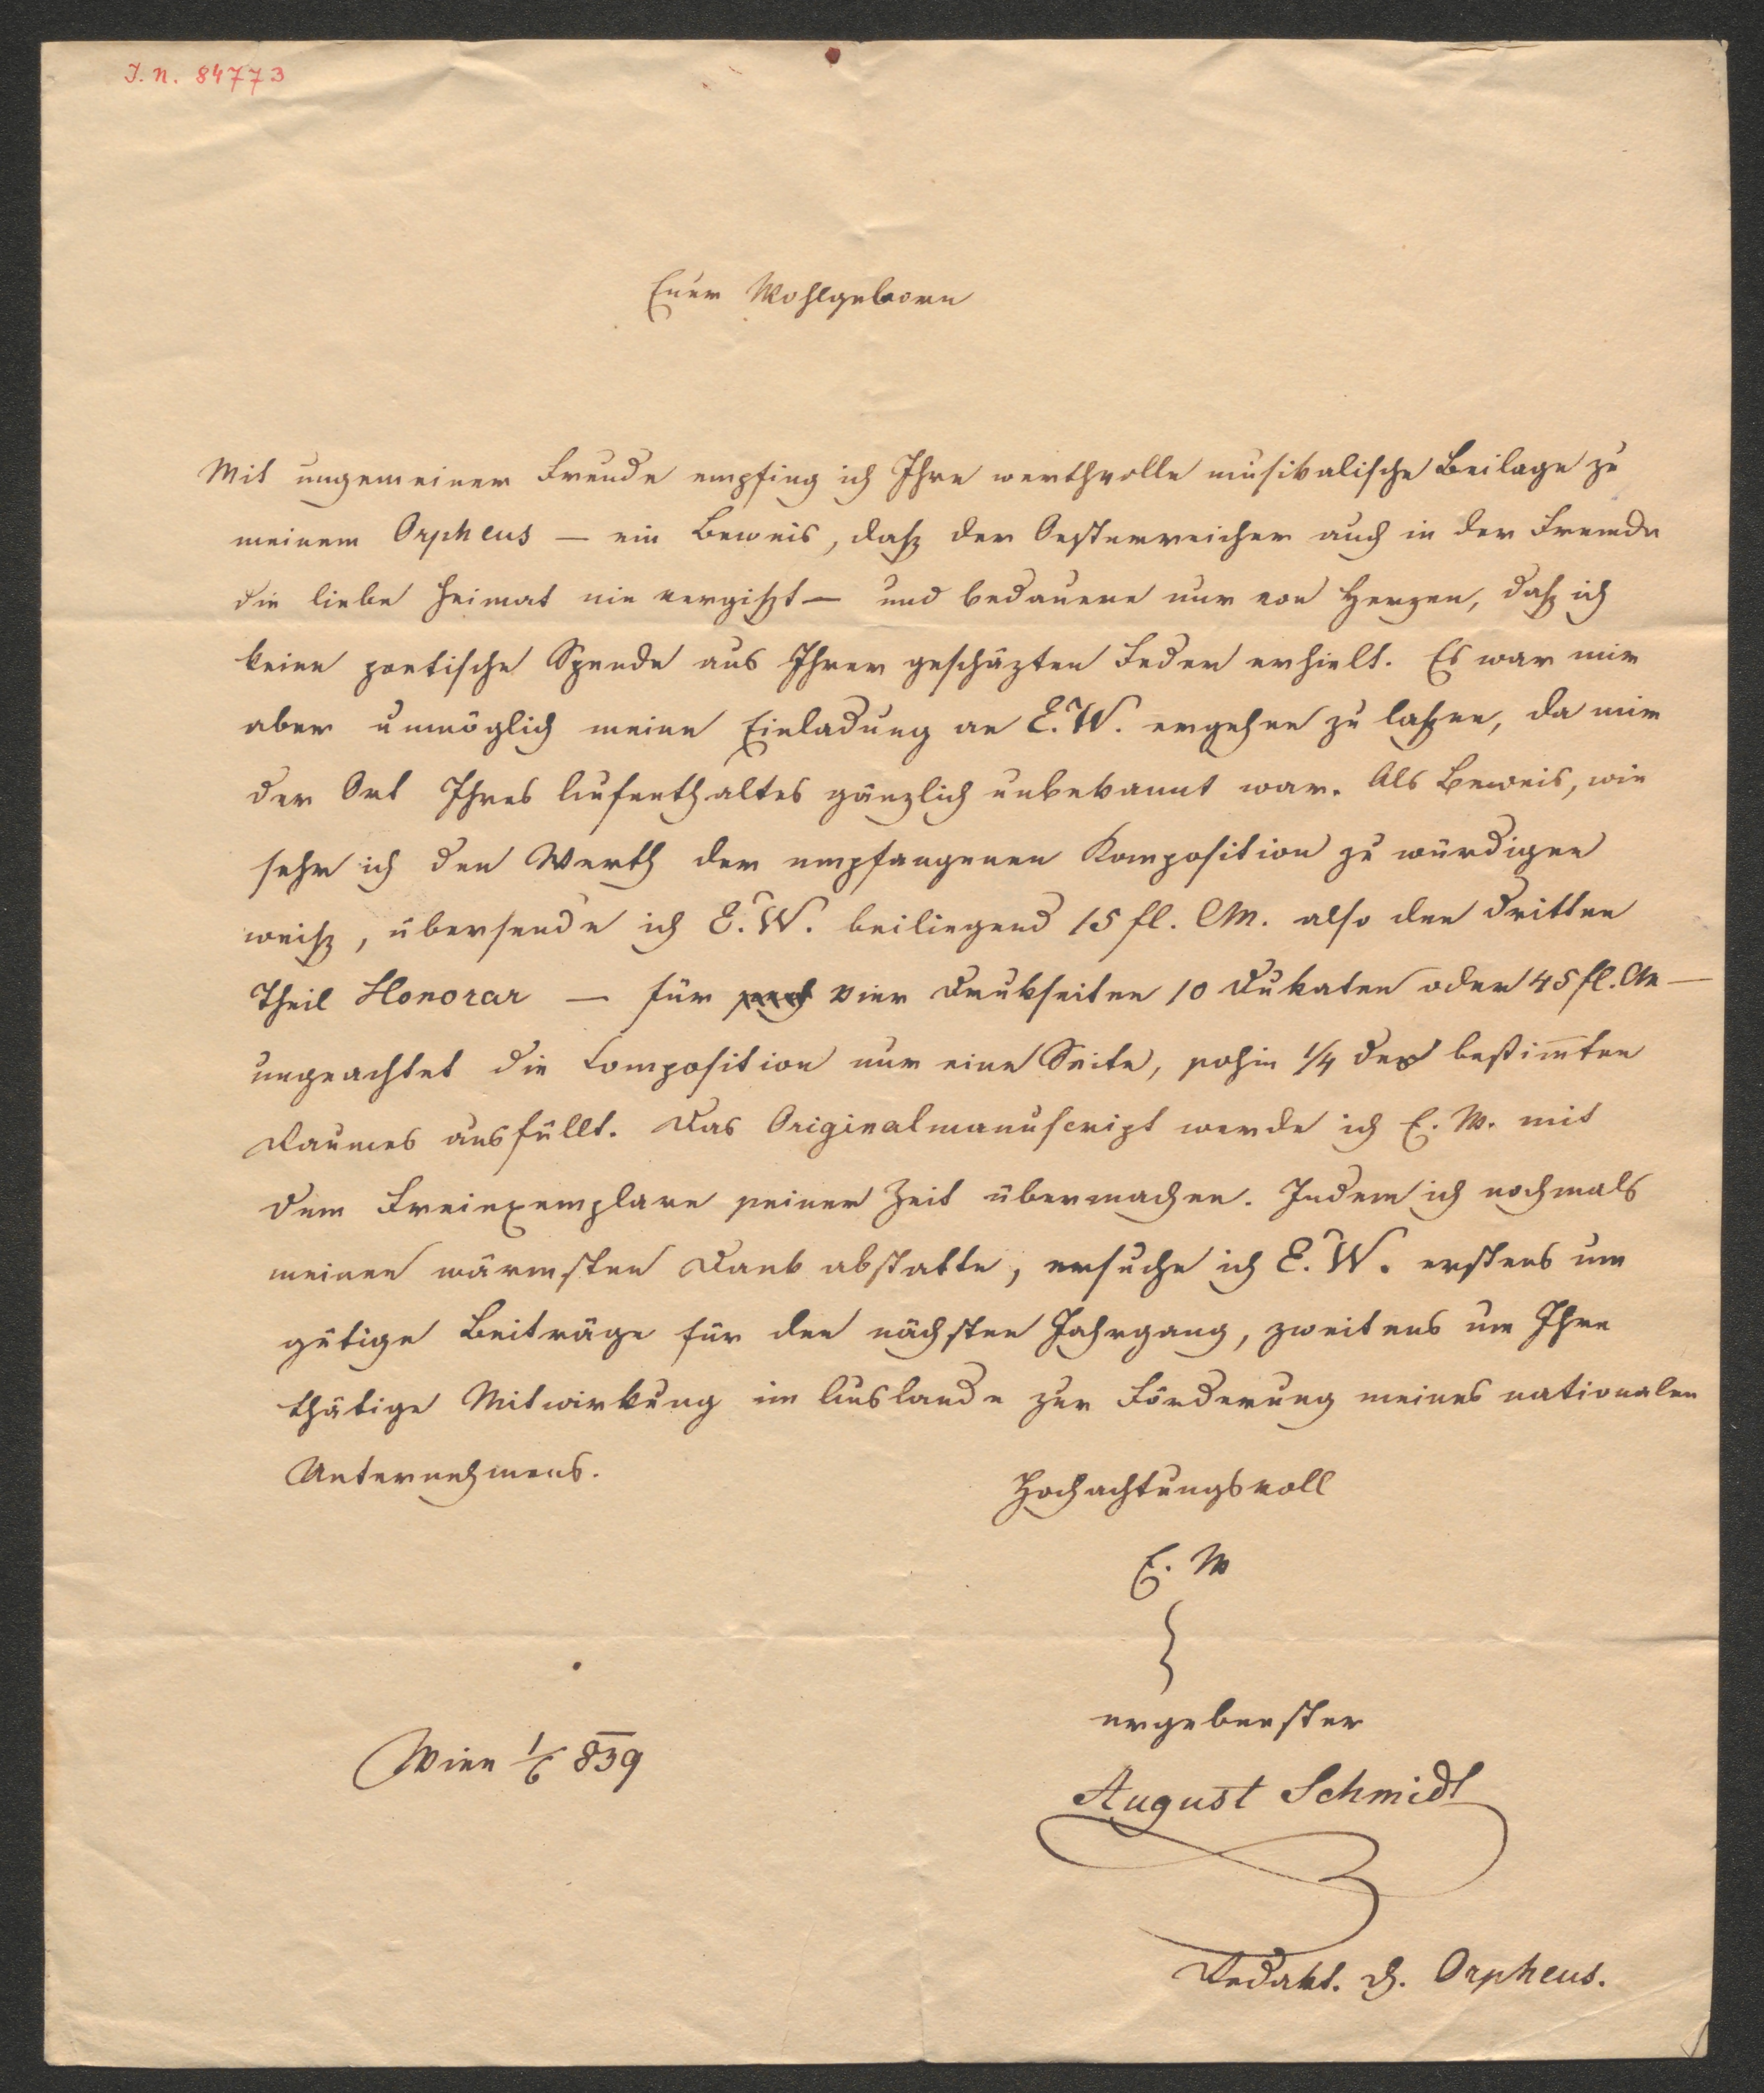 I. N. 84773
Euer Wohlgeborn
Mit ungemeiner Freude empfing ich Ihre werthvolle musikalische Beilage zu
meinem Orpheus — ein Beweis, daß der Oesterreicher auch in der Fremde
die liebe Heimat nie vergißt — und bedauere nur von Herzen, daß ich
keine poetische Spende aus Ihrer geschäzten Feder erhielt. Es war mir
aber unmöglich meine Einladung an E. W. ergehen zu laßen, da mir
der Ort Ihres Aufenthaltes gänzlich unbekannt war. Als Beweis, wie
sehr ich den Werth der empfangenen Komposition zu würdigen
weiß, übersende ich E. W. beiliegend 15 fl. CM. also den dritten
Theil Honorar — für vier Drukseiten 10 Dukaten oder 45 fl. CM —
ungeachtet die Composition nur eine Seite, sohin 1/4 des bestimten
Raumes ausfüllt. Das Originalmanuscript werde ich E. W. mit
dem Freiexemplare seiner Zeit übermachen. Indem ich nochmals
meinen wärmsten Dank abstatte, ersuche ich E. W. erstens um
gütige Beiträge für den nächsten Jahrgang, zweitens um Ihre
thätige Mitwirkung im Auslande zur Förderung meines nationalen
Unternehmens.
Hochachtungsvoll
E. W
ergebenster
Wien 1/6 839
August Schmidt
Redakt. d. Orpheus.